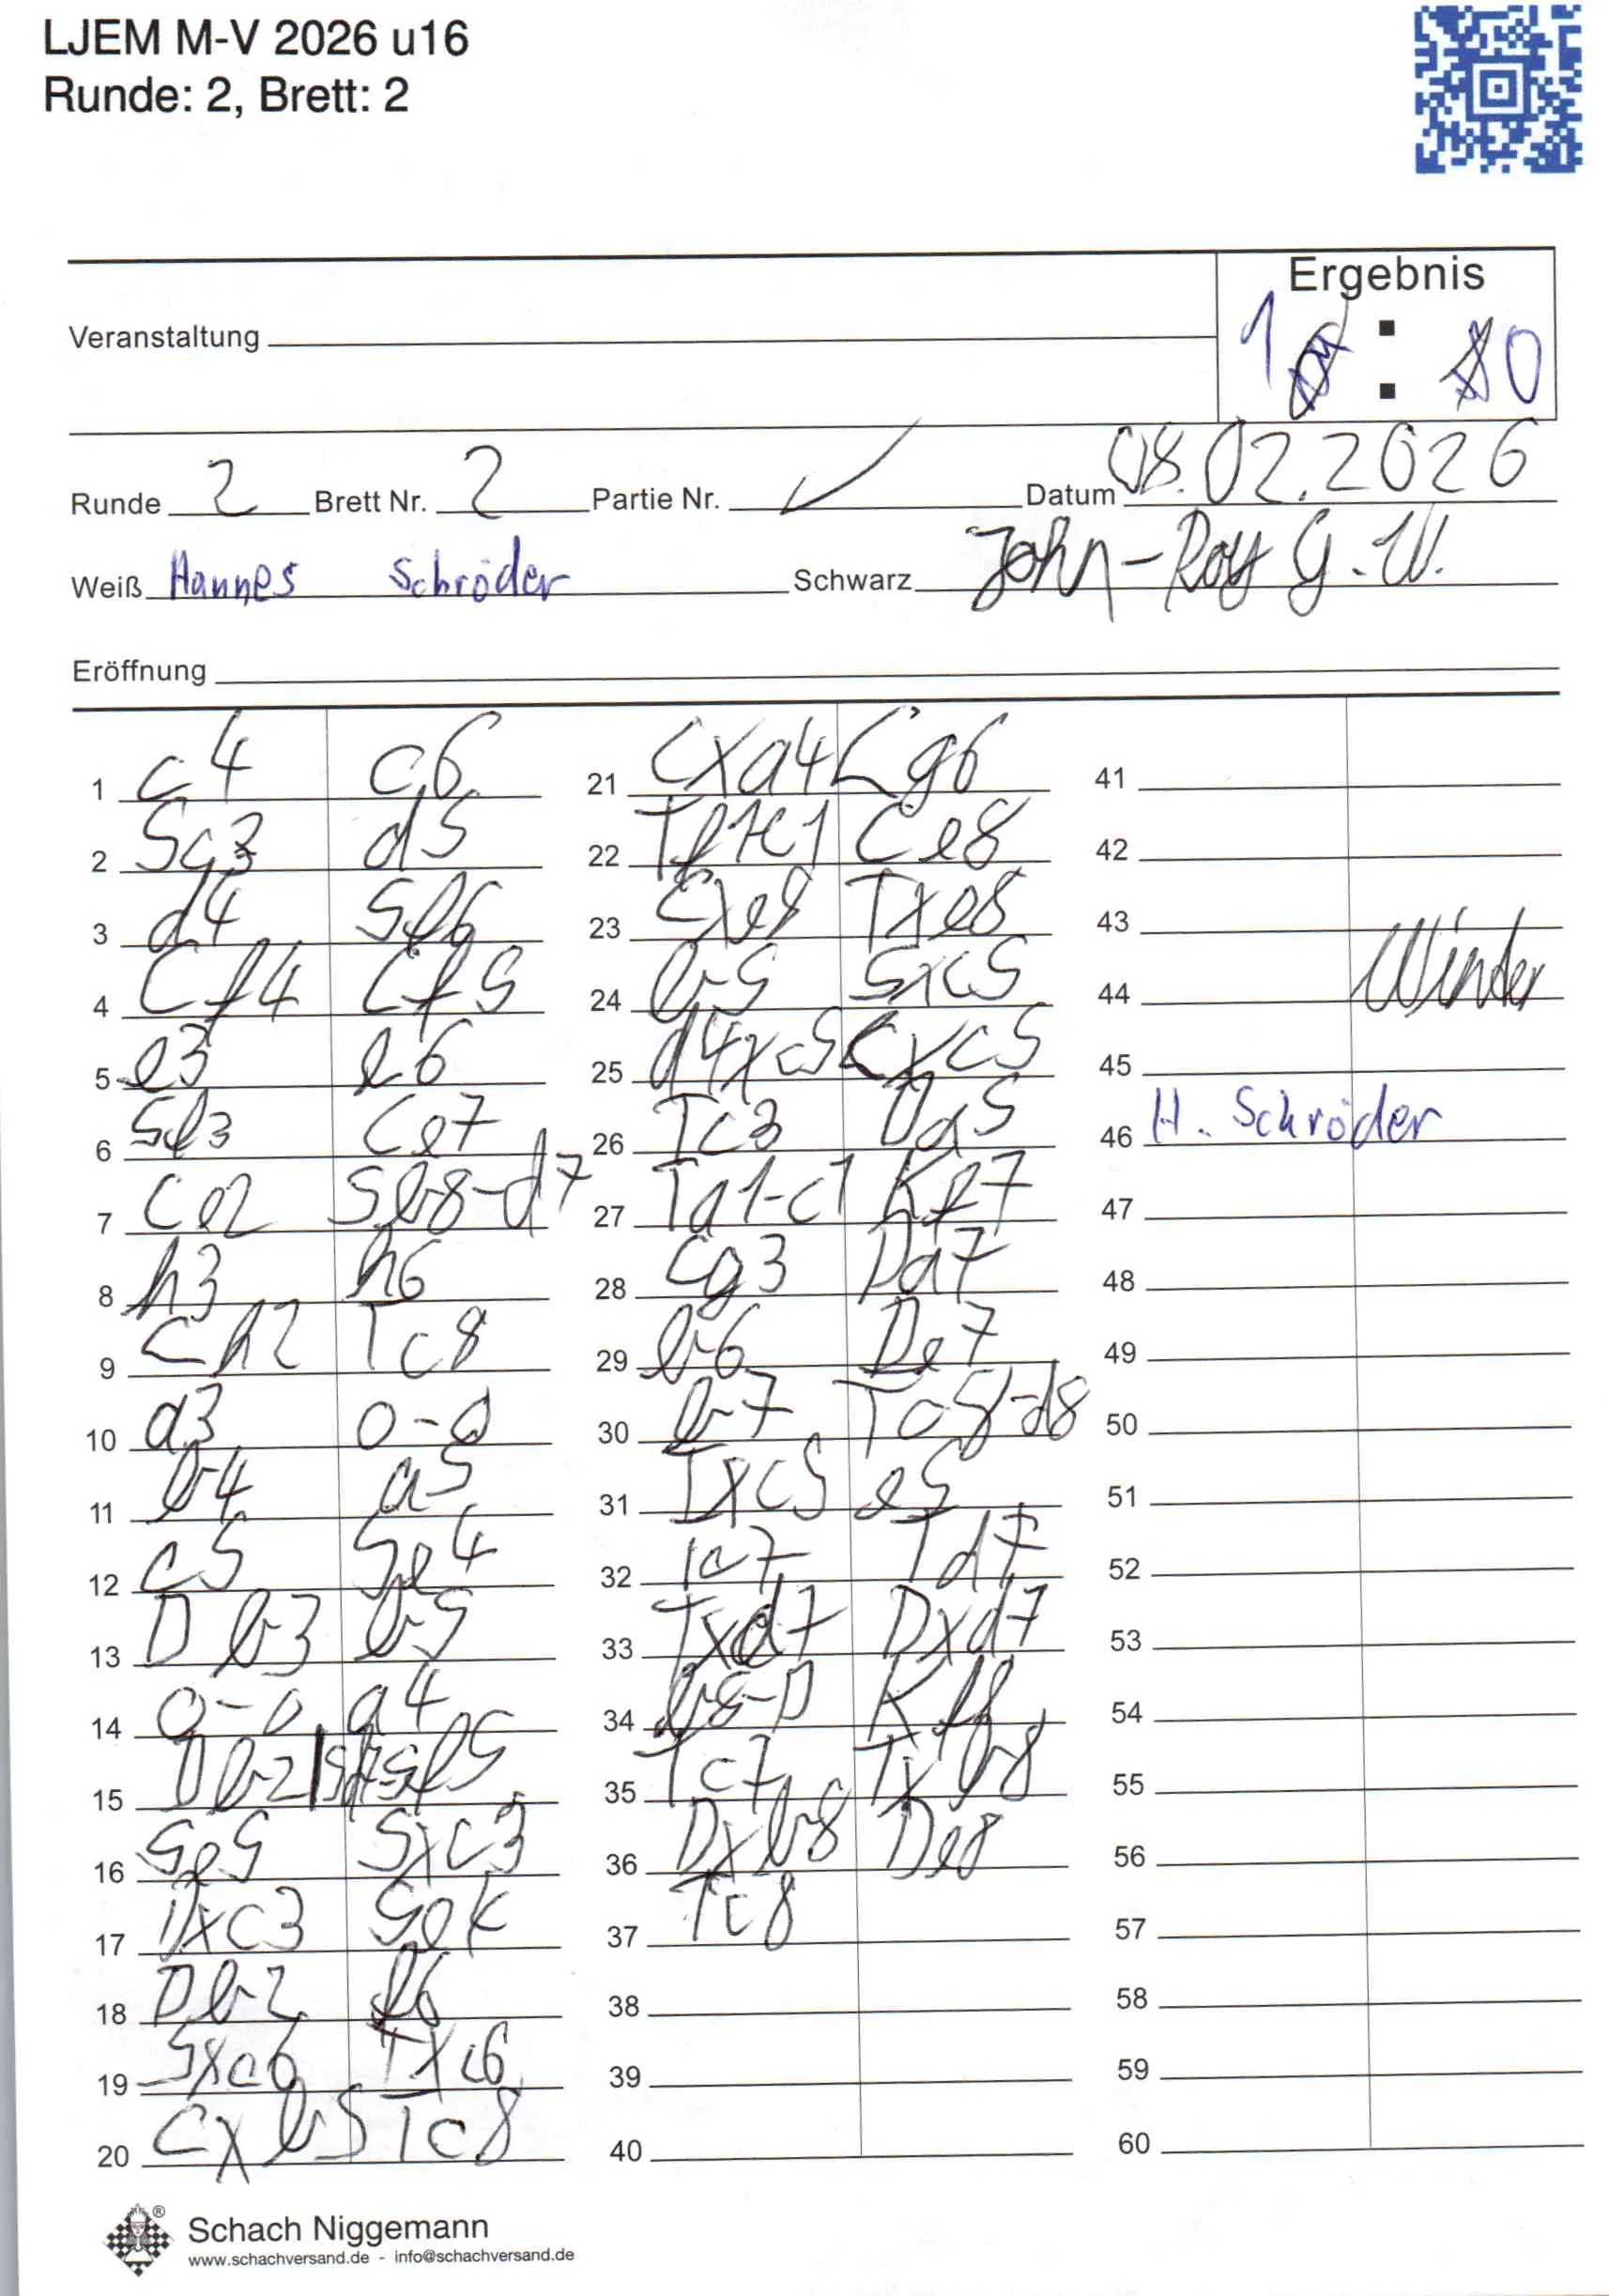 LJEM M-V 2026 u16
Runde: 2, Brett: 2
Ergebnis
Veranstaltung
1 : 0
Runde 2 Brett Nr. 2 Partie Nr. Datum 08.02.2026
Weiß Hannes Schröder Schwarz John-Roy G.W.
Eröffnung
1 c4 c6 21 Lxa4 Lg6 41
2 Sc3 d5 22 Tf1c1 Le8 42
3 d4 Sf6 23 Lxe8 Txe8 43
4 Lf4 Lf5 24 b5 Sxc5 44 Winter
5 e3 e6 25 d4xc5 Lxc5 45
6 Sf3 Le7 26 Tc3 Da5 46 H. Schröder
7 Le2 Sb8-d7 27 Ta1-c1 Kf7 47
8 h3 h6 28 Lg3 Da7 48
9 Lh2 Tc8 29 b6 De7 49
10 a3 0-0 30 b7 Tc8-d8 50
11 b4 a5 31 Txc5 e5 51
12 c5 Se4 32 Tc7 Td7 52
13 Db3 b5 33 Txd7 Dxd7 53
14 0-0 a4 34 b8-D 54
15 Db2 35 Tc7 Txb8 55
16 Se5 Sxc3 36 Dxb8 De8 56
17 Dxc3 Se4 37 Tc8 57
18 Db2 f6 38 58
19 Sxc6 Txc6 39 59
20 Lxb5 Tc8 40 60
Schach Niggemann
www.schachversand.de - info@schachversand.de